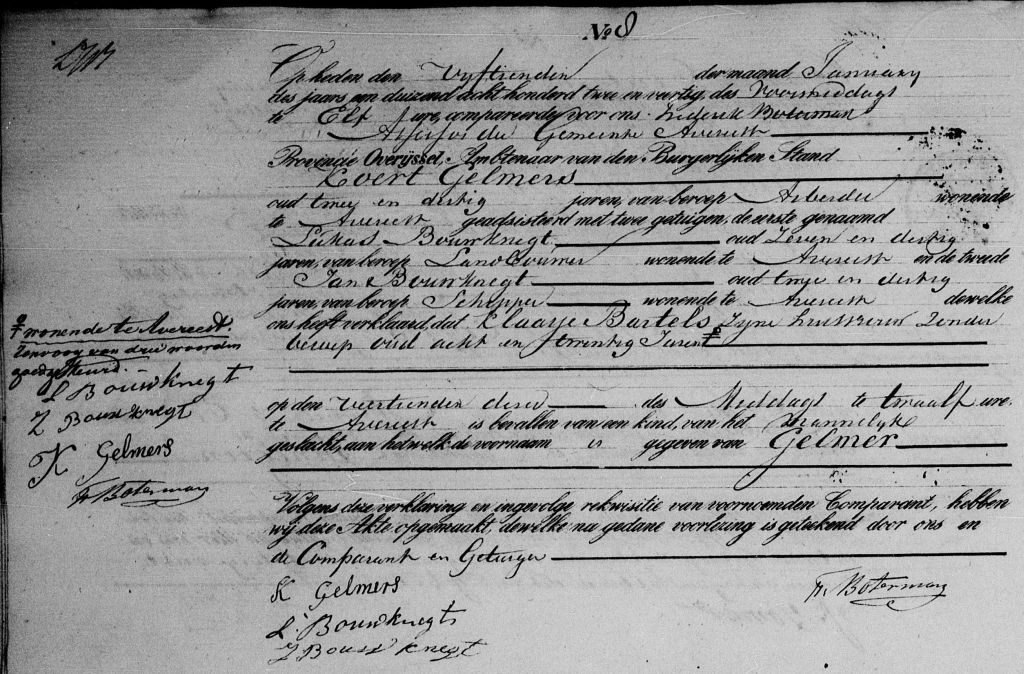 No 8
Op heden den Vyftienden der maand January
des jaars een duizend acht honderd twee en veertig, des Voormiddags
te Elf ure, compareerde voor ons Frederik Boterman
Assessor der Gemeente Avereest
Provincie Overijssel, Ambtenaar van den Burgerlijken Stand
Koert Gelmers
oud twee en dertig jaren, van beroep Arbeider wonende
te Avereest geadsisteerd met twee getuigen, de eerste genaamd
Lukas Bouwknegt oud Zeven en dertig
jaren, van beroep Landbouwer wonende te Avereest en de tweede
Jan Bouwknegt oud twee en dertig
jaren, van beroep Schipper wonende te Avereest dewelke
ons heeft verklaard, dat Klaasje Bartels Zyne huisvrouw Zonder
beroep oud acht en twintig Jaren
op den veertienden dezer des Middags te twaalf ure
te Avereest is bevallen van een kind, van het Mannelyke
geslacht, aan hetwelk de voornaam is gegeven van Gelmer
Volgens deze verklaring en ingevolge rekwisitie van voornoemden Comparant, hebben
wij deze Akte opgemaakt, dewelke na gedane voorlezing is geteekend door ons en
de Comparant en Getuigen
K Gelmers
L Bouwknegt
J Bouwknegt
Fr. Boterman
wonende te Avereest.
van drie woorden
goedgekeurd.
L Bouwknegt
J Bouwknegt
K Gelmers
Fr. Boterman